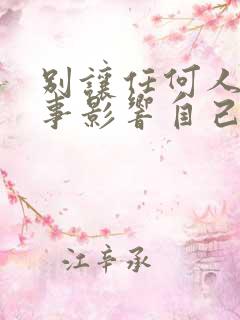 別讓任何人
事影響自己
江辛承